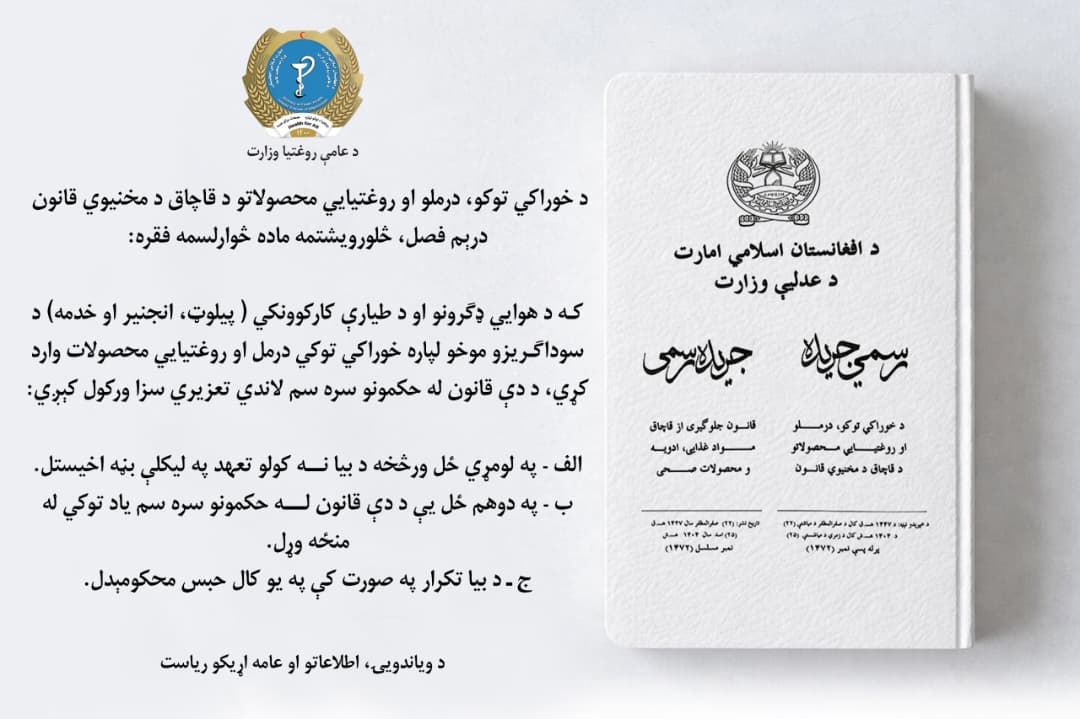 Health for All
۱۴۰۰
د عامې روغتیا وزارت
د خوراکي توکو، درملو او روغتیايي محصولاتو د قاچاق د مخنیوي قانون
درېم فصل، څلورویشتمه ماده څوارلسمه فقره:
که د هوايي ډګرونو او د طیارې کارکوونکي ( پیلوټ، انجنیر او خدمه) د
سوداګریزو موخو لپاره خوراکي توکي درمل او روغتیايي محصولات وارد
کړي، د دې قانون له حکمونو سره سم لاندې تعزیري سزا ورکول کېږي:
الف - په لومړي ځل ورڅخه د بیا نه کولو تعهد په لیکلې بڼه اخیستل.
ب - په دوهم ځل یې د دې قانون له حکمونو سره سم یاد توکي له
منځه وړل.
ج - د بیا تکرار په صورت کې په یو کال حبس محکومېدل.
د ویاندویۍ، اطلاعاتو او عامه اړیکو ریاست
د افغانستان اسلامي امارت
د عدلیې وزارت
رسمي جریده
جریده رسمی
د خوراکي توکو، درملو
او روغتیايي محصولاتو
د قاچاق د مخنیوي قانون
قانون جلوگیری از قاچاق
مواد غذایی، ادویه
و محصولات صحی
د خپرېدو نېټه: د ۱۴۴۷ هـ.ق کال د صفرالمظفر د میاشتې (۲۲)
د ۱۴۰۴ هـ.ش کال د زمري د میاشتې (۲۵)
پرله پسې نمبر (۱۴۷۲)
تاریخ نشر: (۲۲) صفرالمظفر سال ۱۴۴۷ هـ.ق
(۲۵) اسد سال ۱۴۰۴ هـ.ش
نمبر مسلسل (۱۴۷۲)